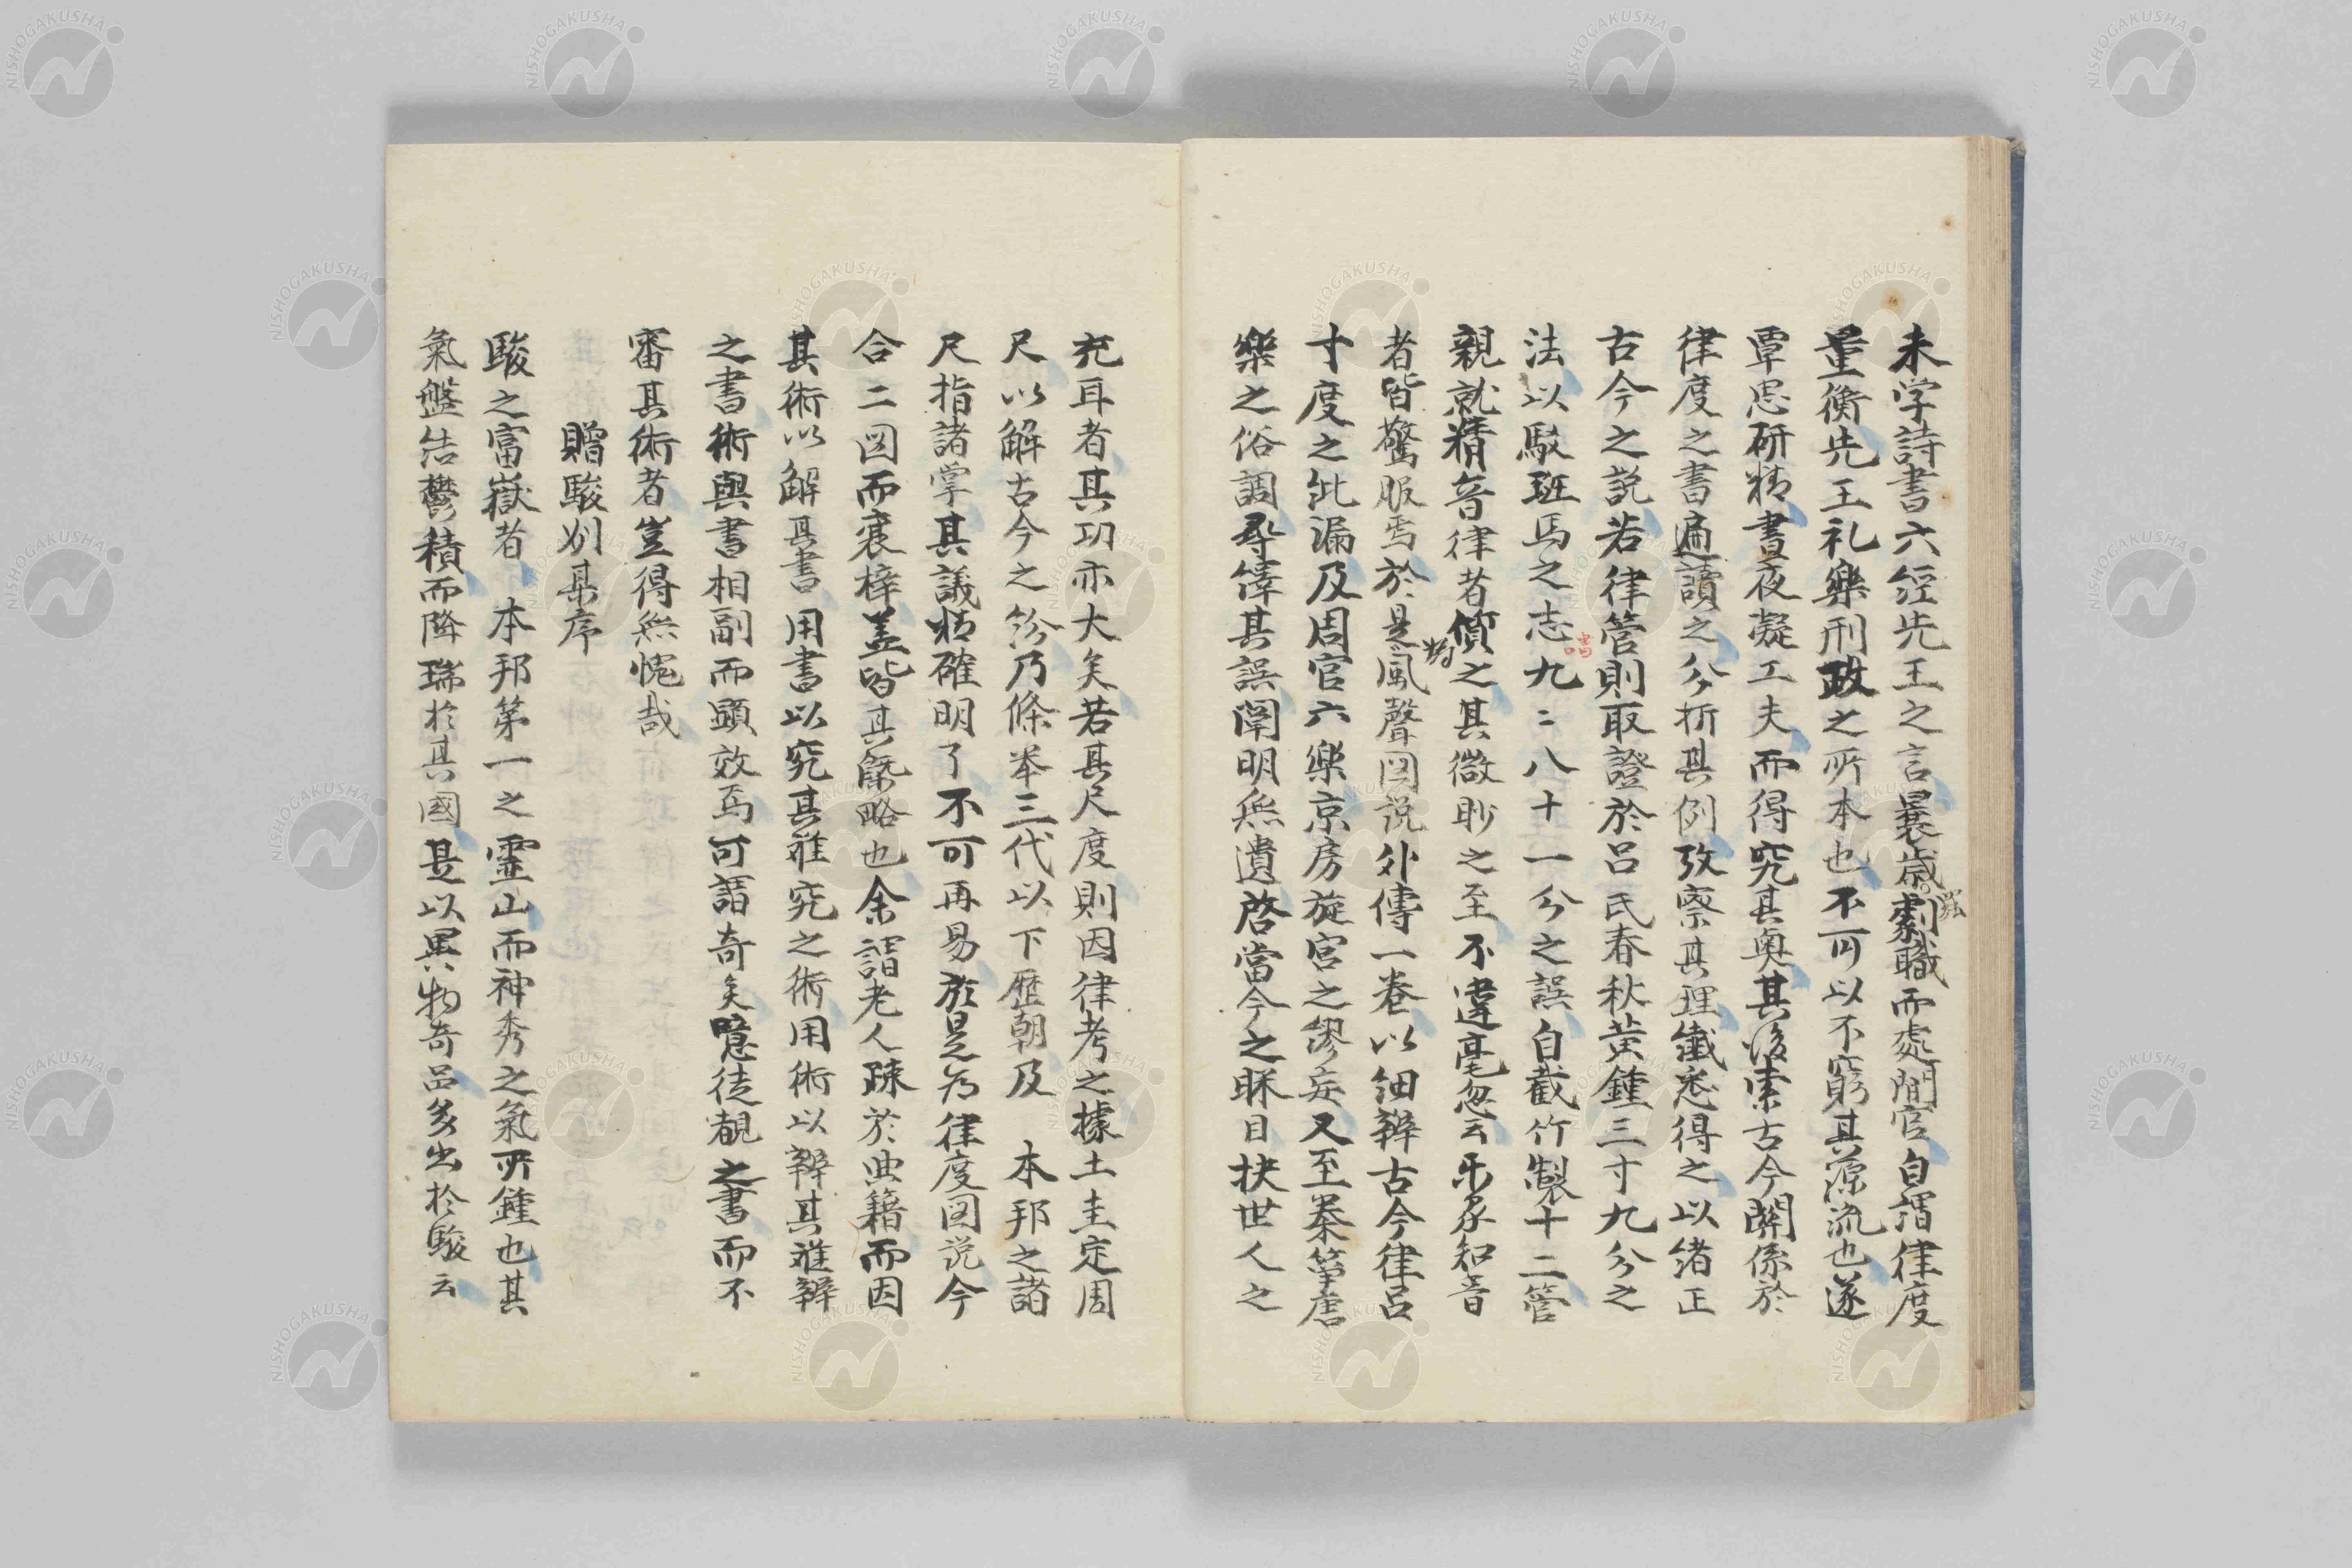 未学詩書六経先王之言曩歳劇職而處閒官自謂律度
罷
量衡先王礼樂刑政之所本也不可以不窮其源流也遂
覃思研精晝夜凝工夫而得究其奥其後索古今關係於
律度之書遍讀之分析其例攷察其理纎悉得之以緒正
古今之説若律管則取證於呂氏春秋黄鍾三寸九分之
法以駁班馬之志九〻八十一分之誤自截竹製十二管
親就精音律者質之其微眇之至不違毫忽云尓家知音
者皆驚服焉於是風聲図説外傳一巻以細辨古今律呂
寸度之訛漏及周官六樂京房旋宮之謬妄又至秦箏唐
樂之俗調尋繹其誤闡明無遺啓當今之眯目抉世人之
充耳者其功亦大矣若其尺度則因律考之據土圭定周
尺以解古今之紛乃條举三代以下歴朝及 本邦之諸
尺指諸掌其議精確明了不可再易於是乃律度図説今
合二図而寰梓盖皆其槩略也余謂老人踈於典籍而因
其術以解其書用書以究其難究之術用術以辨其難辨
之書術與書相副而顕效焉可謂奇矣噫徒覩之書而不
審其術者豈得無愧哉
贈駿州某序
駿之富嶽者 本邦第一之靈山而神秀之氣所鍾也其
氣盤結鬱積而降瑞於其國是以異物奇品多出於駿云
NISHOGAKUSHA